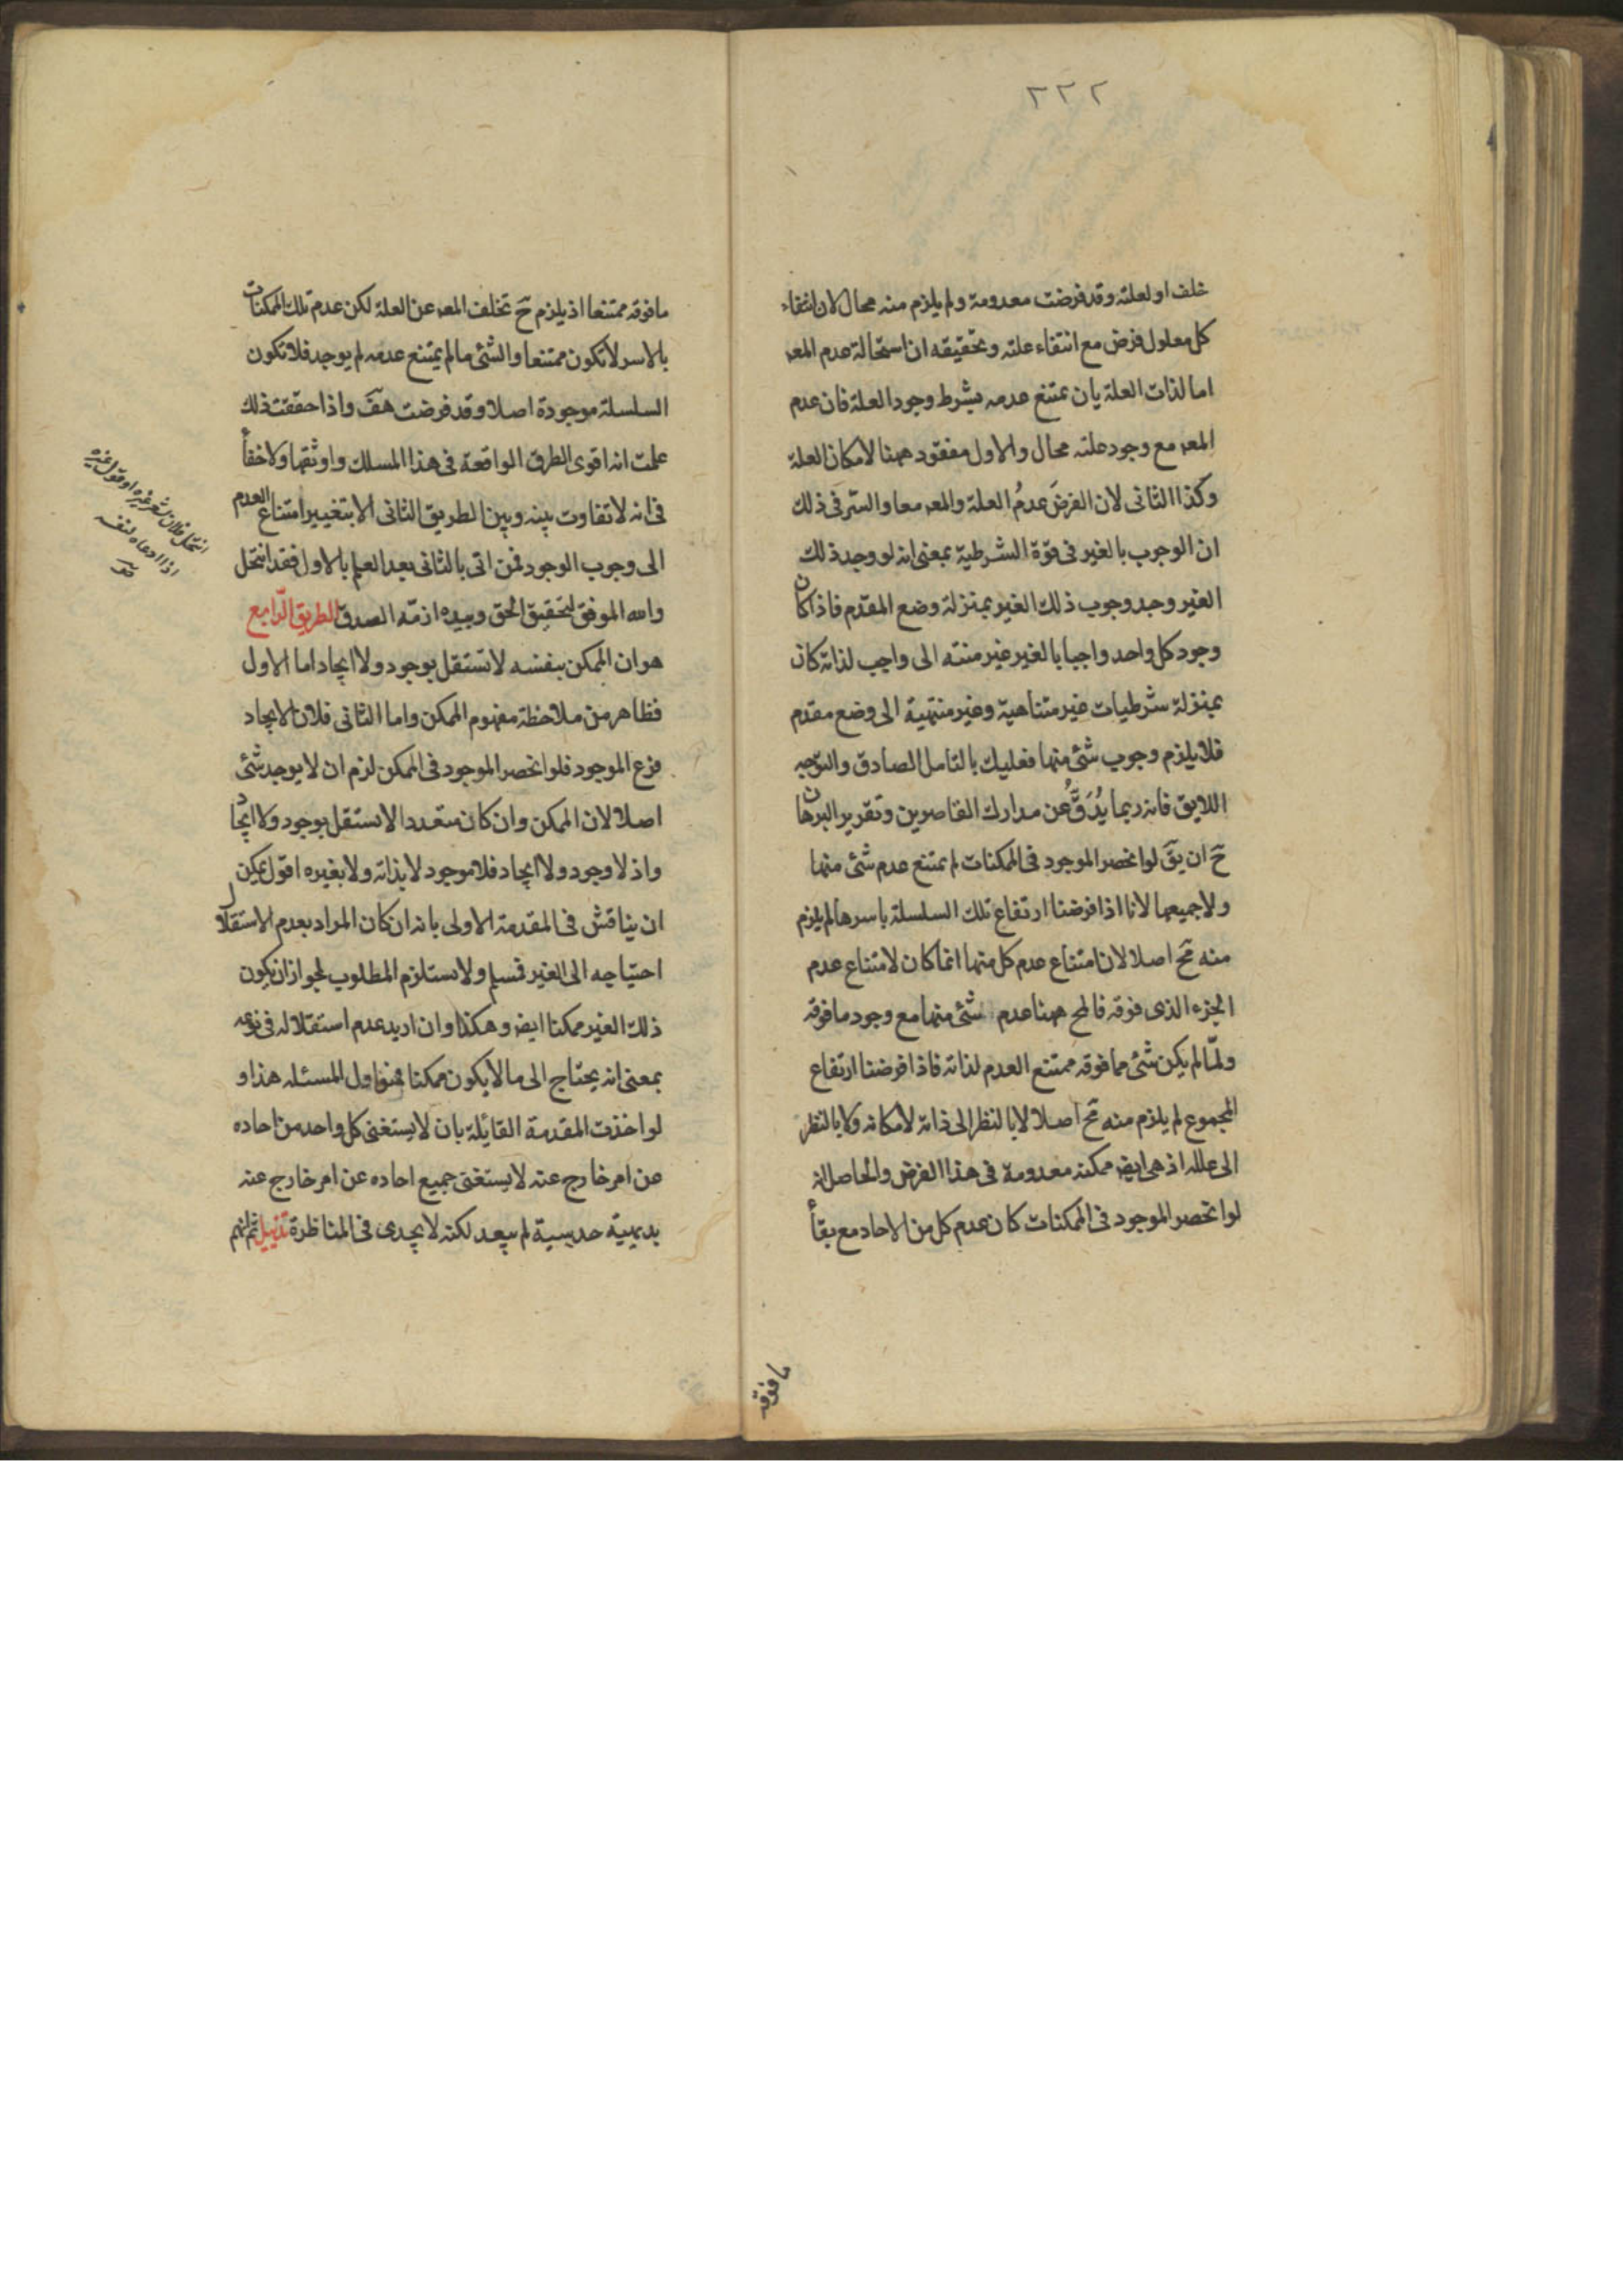 ٢٢٢
خلف او لعلته وقد فرضت معدومة ولم يلزم منه محال لان انتفاء
كل معلول فرض مع انتفاء علته وتحقيقه ان استحالة عدم المعـ
اما لذات العلة بان يمتنع عدمه بشرط وجود العلة فان عدم
المعـ مع وجود علته محال والاول مفقود ههنا لامكان العلة
وكذا الثانى لان الفرضَ عدمُ العلة والمعـ معا والسّر فى ذلك
ان الوجوب بالغير فى قوّة الشرطية بمعنى انه لو وجد ذلك
الغير وجد وجوب ذلك الغير بمنزلة وضع المقدم فاذا كان
وجود كل واحد واجبا بالغير غير منته الى واجب لذاته كان
بمنزلة شرطيات غير متناهية وغير منتهية الى وضع مقدم
فلا يلزم وجوب شئ منها فعليك بالتامل الصادق والتوجه
اللايق فانه ربما يُدَقُّ عن مدارك القاصرين وتقرير البرهان
حَ ان يقَ لو انحصر الموجود فى الممكنات لم يمتنع عدم شئ منها
ولا جميعها لانا اذا فرضنا ارتفاع تلك السلسلة باسرها لم يلزم
منه مح اصلا لان امتناع عدم كل منها انما كان لامتناع عدم
الجزء الذى فوقه فالمح ههنا عدم شئ منها مع وجود ما فوقه
ولمّا لم يكن شئ مما فوقه ممتنع العدم لذاته فاذا فرضنا ارتفاع
المجموع لم يلزم منه مح اصلا لا بالنظر الى ذاته لامكانه ولا بالنظر
الى علله اذ هى ايضـ ممكنه معدومة فى هذا الفرض والحاصل انه
لو انحصر الموجود فى الممكنات كان عدم كل من الاحاد مع بقأ
ما فوقه
ما فوقه ممتنعا اذ يلزم حَ تخلف المعـ عن العلة لكن عدم تلك الممكنات
بالاسر لا تكون ممتنعا والشئ ما لم يمتنع عدمه لم يوجد فلا تكون
السلسلة موجودة اصلا وقد فرضت هفَ واذا حققت ذلك
علمت انه اقوى الطرق الواقعة فى هذا المسلك واوثقها ولا خفأ
فى انه لا تفاوت بينه وبين الطريق الثانى الا بتغيير امتناع العدم
الى وجوب الوجود فمن اتى بالثانى بعد العلم بالاول فقد انتحل
والله الموفق لتحقيق الحق وبيده ازمّة الصدق الطريق الرّابع
هو ان الممكن بنفسه لا تستقل بوجود ولا ايجاد اما الاول
فظاهر من ملاحظة مفهوم الممكن واما الثانى فلان الايجاد
فرع الموجود فلو انحصر الموجود فى الممكن لزم ان لا يوجد شئ
اصلا لان الممكن وان كان متعددا لا يستقل بوجود ولا ايجاد
واذ لا وجود ولا ايجاد فلا موجود لا بذاته ولا بغيره اقول يمكن
ان يناقش فى المقدمة الاولى بانه ان كان المراد بعدم الاستقلال
احتياجه الى الغير فسلم ولا يستلزم المطلوب لجواز ان يكون
ذلك الغير ممكنا ايضـ وهكذا وان اريد عدم استقلاله فى نوعه
بمعنى انه يحتاج الى ما لا يكون ممكنا فهو اول المسئله هذا و
لو اخذت المقدمة القائلة بان لا يستغنى كل واحد من احاده
عن امر خارج عنه لا يستغنى جميع احاده عن امر خارج عنه
بديهيّة حدسية لم يبعد لكنه لا يجدى فى المناظرة تذييل ثم انهم
انتحل فلان شعر غيره او قول غيره
اذا ادعاه لنفسه